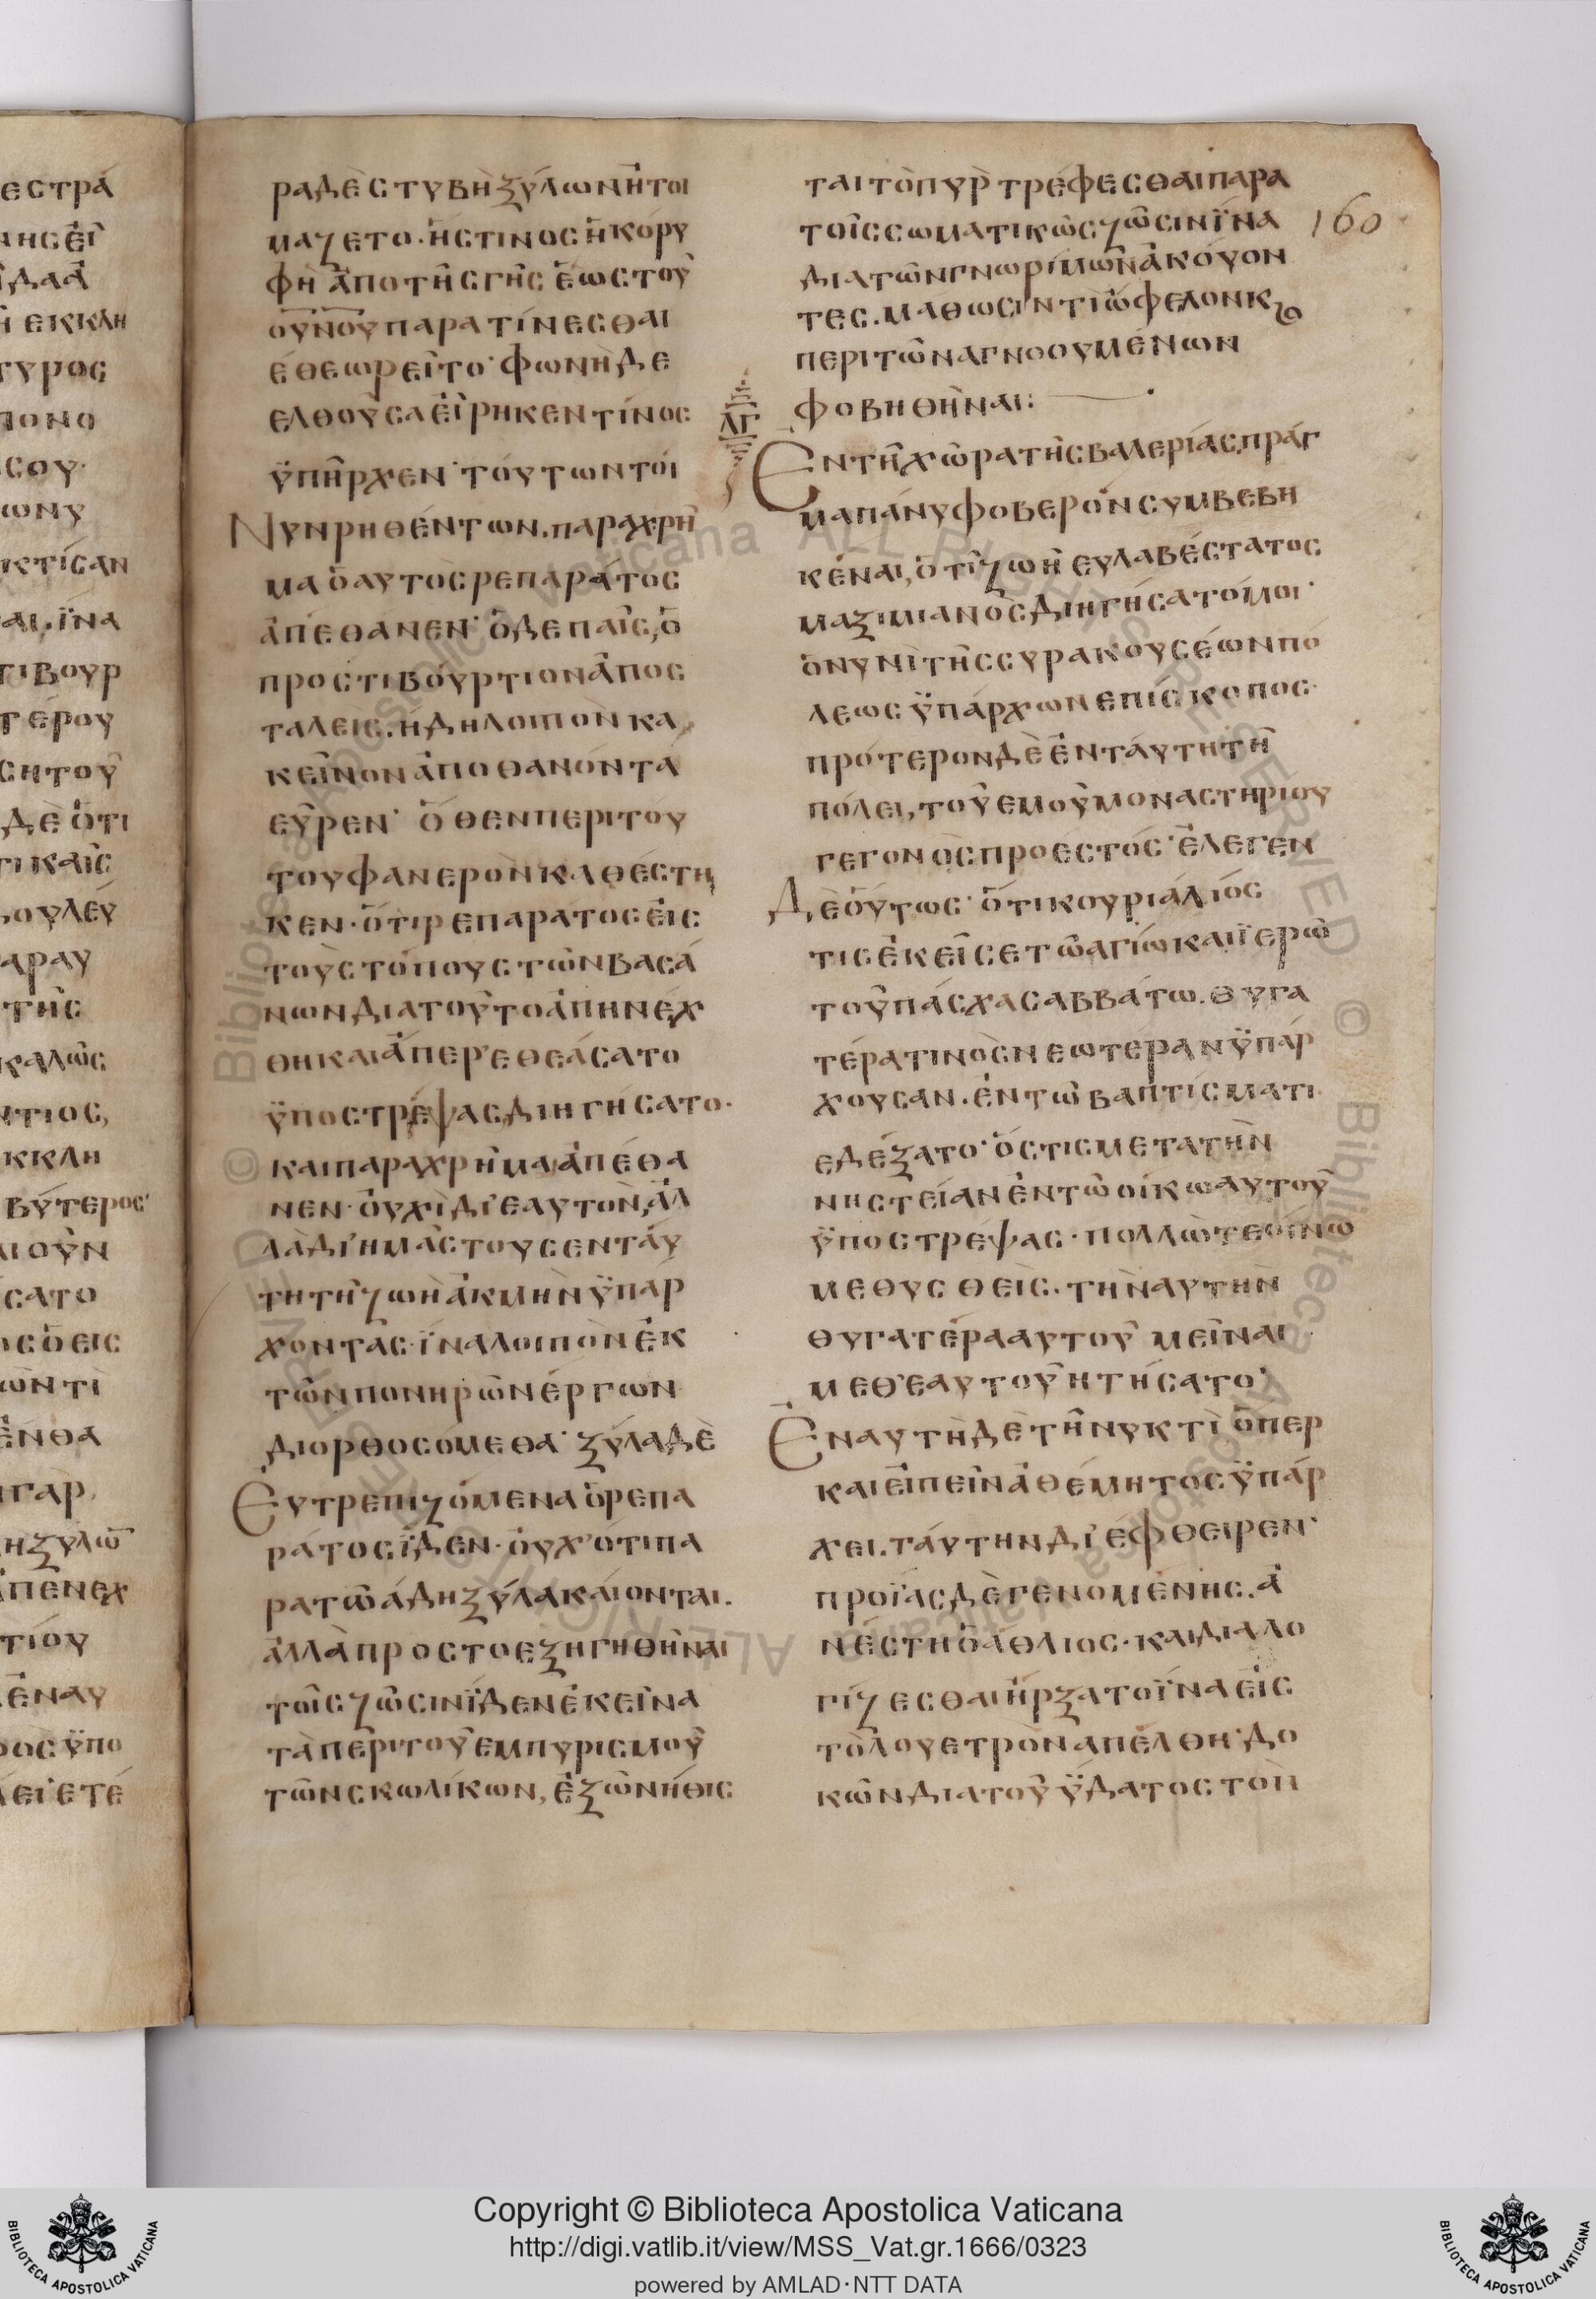 εστρά
ησεἰ
δαἀ
ἡ εκκλη
τυρος
πονο
σου·
ωνυ
κτίσαν
αι. ἵνα
τιβουρ
τέρου
σητοῦ
δὲ ὅτι
τικαῖς
βουλεύ
αραυ
τῆς
καλῶς
ντιος,
κκλη
βύτερος·
αι οὖν
σατο
ος ὁ εις
ῶν τὶ
ἔνθα
γὰρ
ηξύλω
ἀπενεχ
τίου
ἐναυ
ρος ὑπο
λει ετέ
ραδὲστυβὴξύλωνἥτοι
μαζετο· ἥστινοσἡκόρυ
φὴ ἀποτῆσγῆς ἕωστοῦ
ουνουπαρατίνεσθαι
ἐθεωρεῖτο· φωνὴδε
ελθοῦσαεἴρηκεντίνος
ὑπῆρχεν· τούτωντοί
Νυνρηθέντων. παραχρῆ
μαὁαυτὸσρεπαράτος
ἀπέθανεν· ὁδεπαῖς, ὁ
προστιβούρτιονἀπος
ταλεὶς. ἤδηλοιπὸνκα
κεῖνονἀποθανόντα
εὗρεν· ὅθενπεριτού
τουφανερὸνκαθέστη
κεν· ὅτιρεπαράτοσεἰς
τοὺστόπουστῶνβασά
νωνδιατοῦτοἀπηνέχ
θηκαιἅπερ'εθεάσατο
ὑποστρέψασδιηγήσατο·
καιπαραχρῆμαἀπέθα
νεν· ὀυχὶδι'εαυτὸν, ἀλ
λὰδι'ημᾶστουσενταύ
τητῆζωῆἀκμὴνὑπάρ
χοντας· ἵναλοιπὸνἐκ
τῶνπονηρῶνέργων
διορθοσόμεθα· ξύλαδὲ
Ευτρεπιζόμεναὁρεπα
ράτοσἴδεν· ὀυχ'ότιπα
ρατῶάδηξύλακαίονται.
ἀλλὰπροστοεξηγηθῆναι
τοῖσζῶσινἴδενἐκεῖνα
τὰπεριτοῦεμπυρισμοῦ
τῶνσκωλίκων, ἐξῶνήθις
ταιτὸπῦρτρέφεσθαιπαρα
τοῖσσωματικῶσζῶσινἵνα
160
διατῶνγνωρίμωνἀκόυον
τες. μαθωσιντιὤφελονκ
περιτῶναγνοουμένων
φοβηθῆναι:
ΛΓ
Εντῆχῶρατῆσβαλερίας, πράγ
μαπάνυφοβερὸνσυμβεβη
κέναι, ὁτίζωὴευλαβέστατος
μαξιμιανὸσδιηγήσατόμοι·
ὁνυνὶτῆσσυρακουσέωνπό
λεωσὑπάρχωνεπίσκοπος·
πρότερονδὲἐνταύτητῆ
πόλει, τοῦεμοῦμοναστηρίου
γεγονὼσπροέστός· ἔλεγεν
Δεὅυτως· ὅτικουριάλιός
τισἐκεῖσετῶαγίωκαιἱερῶ
τοῦπάσχασαββάτω. θυγα
τέρατινὸσνεωτέρανὑπάρ
χουσαν. ἐντῶβαπτίσματι
εδέξατο· ὅστισμετατὴν
νηστείανἐντῶοίκωαυτοῦ
ὑποστρέψας· πολλῶτεοίνω
μεθυσθεὶς. τὴναυτὴν
θυγατέρααυτοῦ μεῖναι
μεθ'εαυτοῦητήσατο·
Εναυτῆδὲτῆνυκτὶ ὅπερ
καιεἰπεῖνἀθέμητοσὑπάρ
χει. τάυτηνδι'έφθειρεν·
προΐασδὲγενομένης. ἀ
νέστηὁάθλιος· καιδιαλο
γίζεσθαιἤρξατοἵναεἰς
τὸλουετρὸναπέλθη· δο
κῶνδιατοῦὕδατοστὸπ
Copyright © Biblioteca Apostolica Vaticana
http://digi.vatlib.it/view/MSS_Vat.gr.1666/0323
powered by AMLAD·NTT DATA
BIBLIOTECA APOSTOLICA VATICANA
BIBLIOTECA APOSTOLICA VATICANA